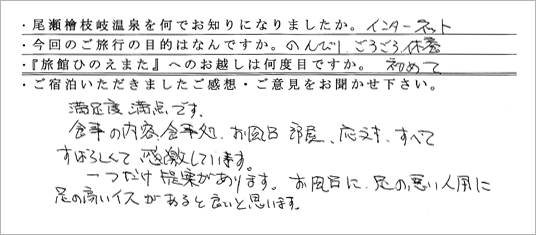 ・尾瀬檜枝岐温泉を何でお知りになりましたか。インターネット
・今回のご旅行の目的はなんですか。のんびり、ごろごろ休養
・『旅館ひのえまた』へのお越しは何度目ですか。初めて
・ご宿泊いただきましたご感想・ご意見をお聞かせ下さい。
満足度 満点です。
食事の内容、食事処、お風呂 部屋、応対、すべて
すばらしくて 感激しています。
一つだけ 提案があります。お風呂に、足の悪い人用に
足の高いイスがあると良いと思います。